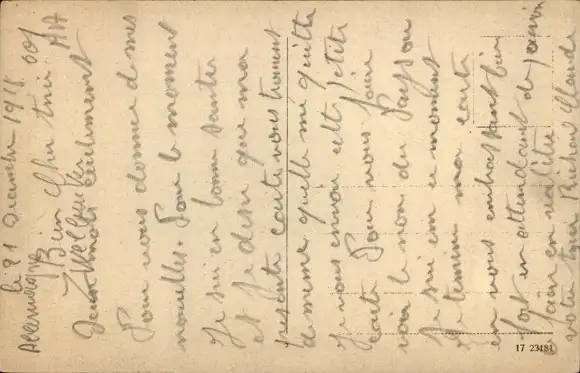 le 21 Decembre 1918
Allemagne
Bien Cher
deux mots seulement
Pour vous donner de mes
nouvelles. Pour le moment
Je sui en bonne santer
et Je desir que ma
presente carte vous trouvent
de meme quelle me quitte
Je vous envoi cett petite
carte Pour vous fair
voir le non du Pays ou
Je sui en ce moment
Je termine ma carte
en vous embrassant bien
fort en attendant de pouvoir
le fair en
votre
17 23181